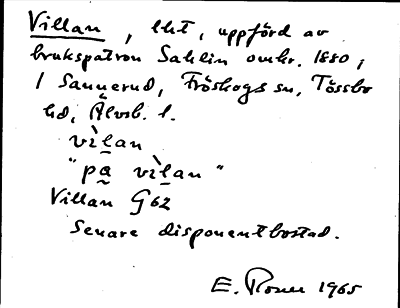 Villan, lht, uppförd av
brukspatron Sahlin omkr. 1880,
i Sannerud, Fröskogs sn, Tössbo
hd, Älvsb. l.
vìlan
"på vìlan"
Villan G62
Senare disponentbostad.
E. Rosen 1965